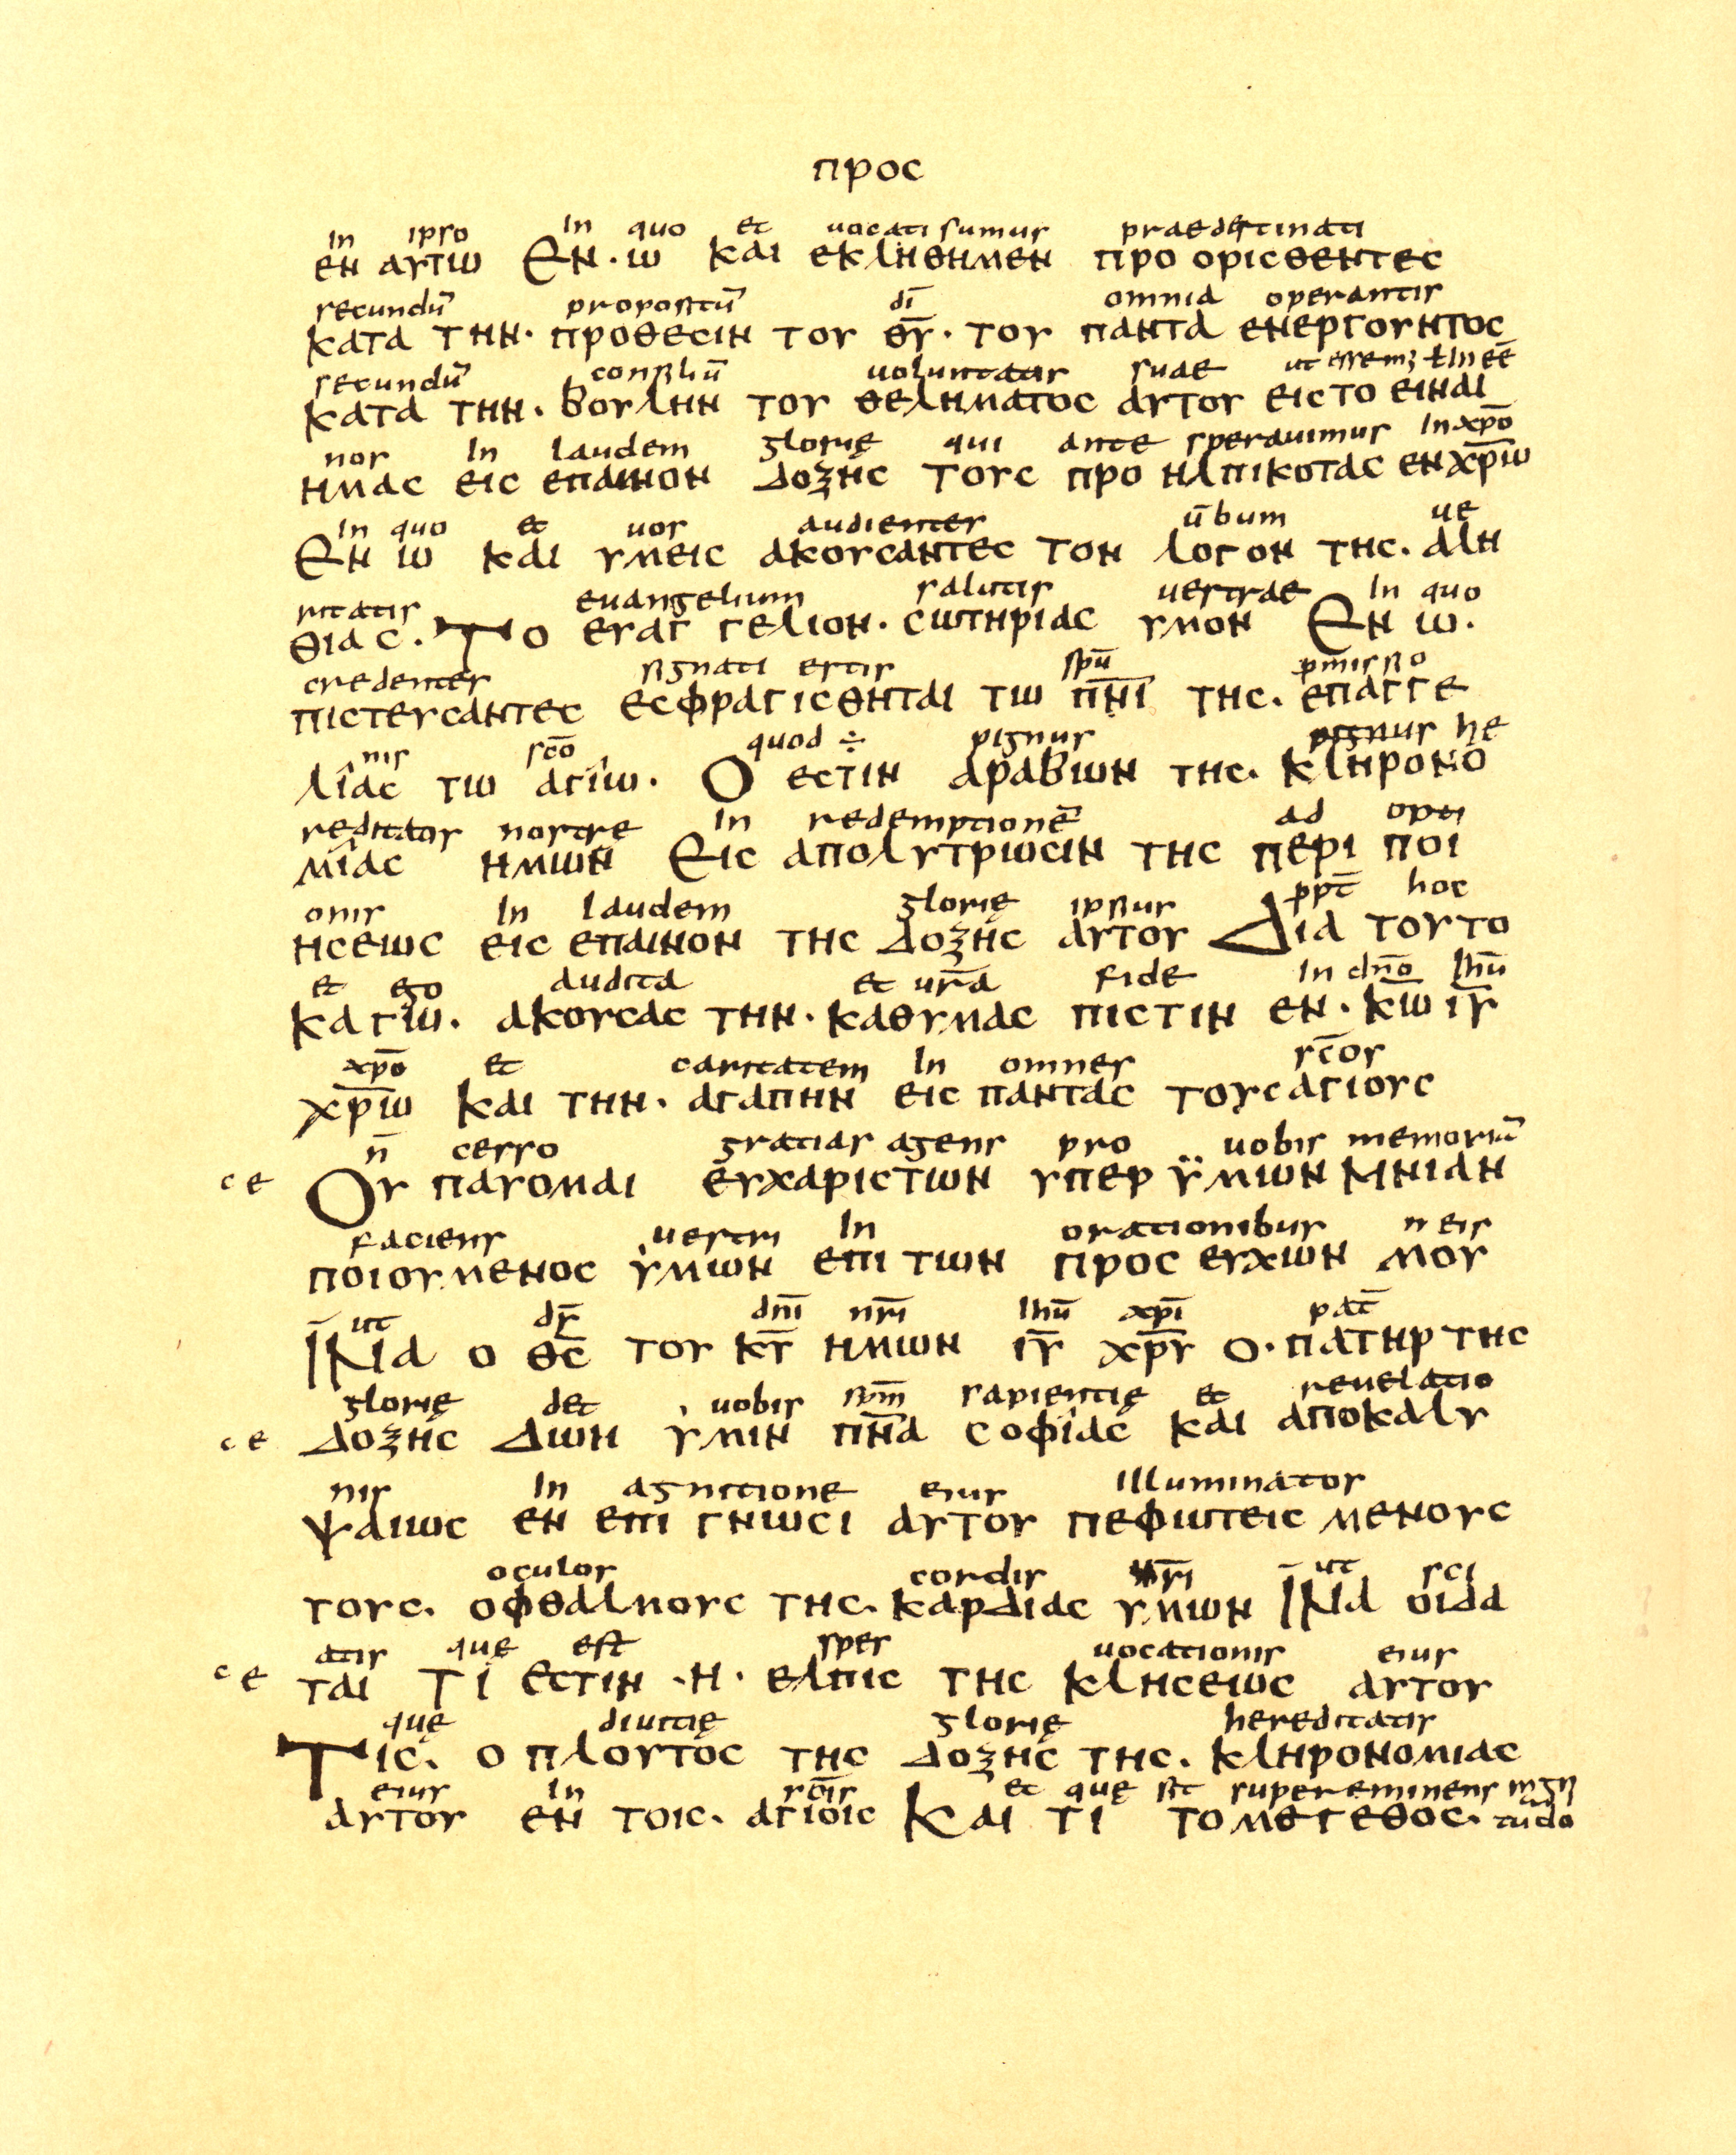 προς
In ipso In quo et uocati sumus praedestinati
εν αυτω Εν · ω και εκληθημεν προ ορισθεντες
secundū propositū dī omnia operantis
κατα την · προθεσιν του θῡ · του παντα ενεργουντος
secundū consiliū uoluntatis suae ut essemꝫ ł In eē
κατα την · βουλην του θεληματος αυτου εις το ειναι
nos In laudem glorię qui ante sperauimus In xp̄o
ημας εις επαινον δοξης τους προ ηλπικοτας εν χρ̄ω
In quo et uos audientes ūbum ue
Εν ω και υμεις ακουσαντες τον λογον της · αλη
ritatis euangelium salutis uestrae In quo
θιας · Το ευαγ γελιον · σωτηριας υμον Εν ω ·
credentes signati estis sp̄u p̄misio
πιστευσαντες εσφραγισθηται τω πν̄ι της · επαγγε
nis sc̄o quod ÷ pignus he
λιας τω αγιω · Ο εστιν αραβων της · κληρονο
reditatis nostrę In redemptionē ad opti
μιας ημων Εις απολυτρωσιν της περι ποι
onis In laudem glorię ipsius pp̄t hoc
ησεως εις επαινον της δοξης αυτου Δια τουτο
et ego audita et ur̄a fide In dn̄o Ihū
καγω · ακουσας την · καθυμας πιστιν εν · κ̄ω ιῡ
xp̄o et caritatem In omnes sc̄os
χρ̄ω και την · αγαπην εις παντας τους αγιους
n̄ cesso gratias agens pro uobis memoriā
ce Ου παυομαι ευχαριστων υπερ ϋμων Μνιαν
faciens uestri In orationibus meis
ποιουμενος υμων επι των προς ευχων μου
ut ds̄ dn̄i nr̄i Ihū xp̄i pat̄
Ινα ο θς̄ του κῡ ημων ιῡ χρ̄υ ο · πατηρ της
glorię det uobis sp̄m sapientię et reuelatio
ce δοξης δωη υμιν πν̄α σοφιας και αποκαλυ
nis In agnitione eius Illuminatos
ψαιως εν επι γνωσι αυτου πεφωτεις μενους
oculos cordis ur̄i ut sci
τους · οφθαλμους της · καρδιας υμων Ινα οιδα
atis quę est spes uocationis eius
ce ται Τι Εστιν · η · ελπις της κλησεως αυτου
quę diuitię glorię hereditatis
Τις · ο πλουτος της δοξης της · κληρονομιας
eius In sc̄is et quę sit supereminens magni
αυτου εν τοις · αγιοις Και τι το μεγεθος · tudo